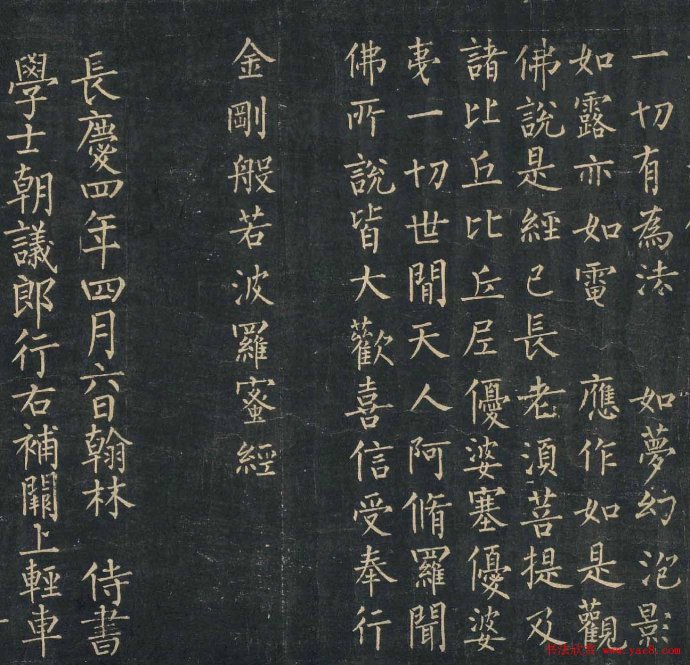 一切有為法 如夢幻泡影
如露亦如電 應作如是觀
佛說是經已長老須菩提及
諸比丘比丘尼優婆塞優婆
夷一切世間天人阿脩羅聞
佛所說皆大歡喜信受奉行
金剛般若波羅蜜經
長慶四年四月六日翰林 侍書
學士朝議郎行右補闕上輕車
书法欣赏 www.yac8.com